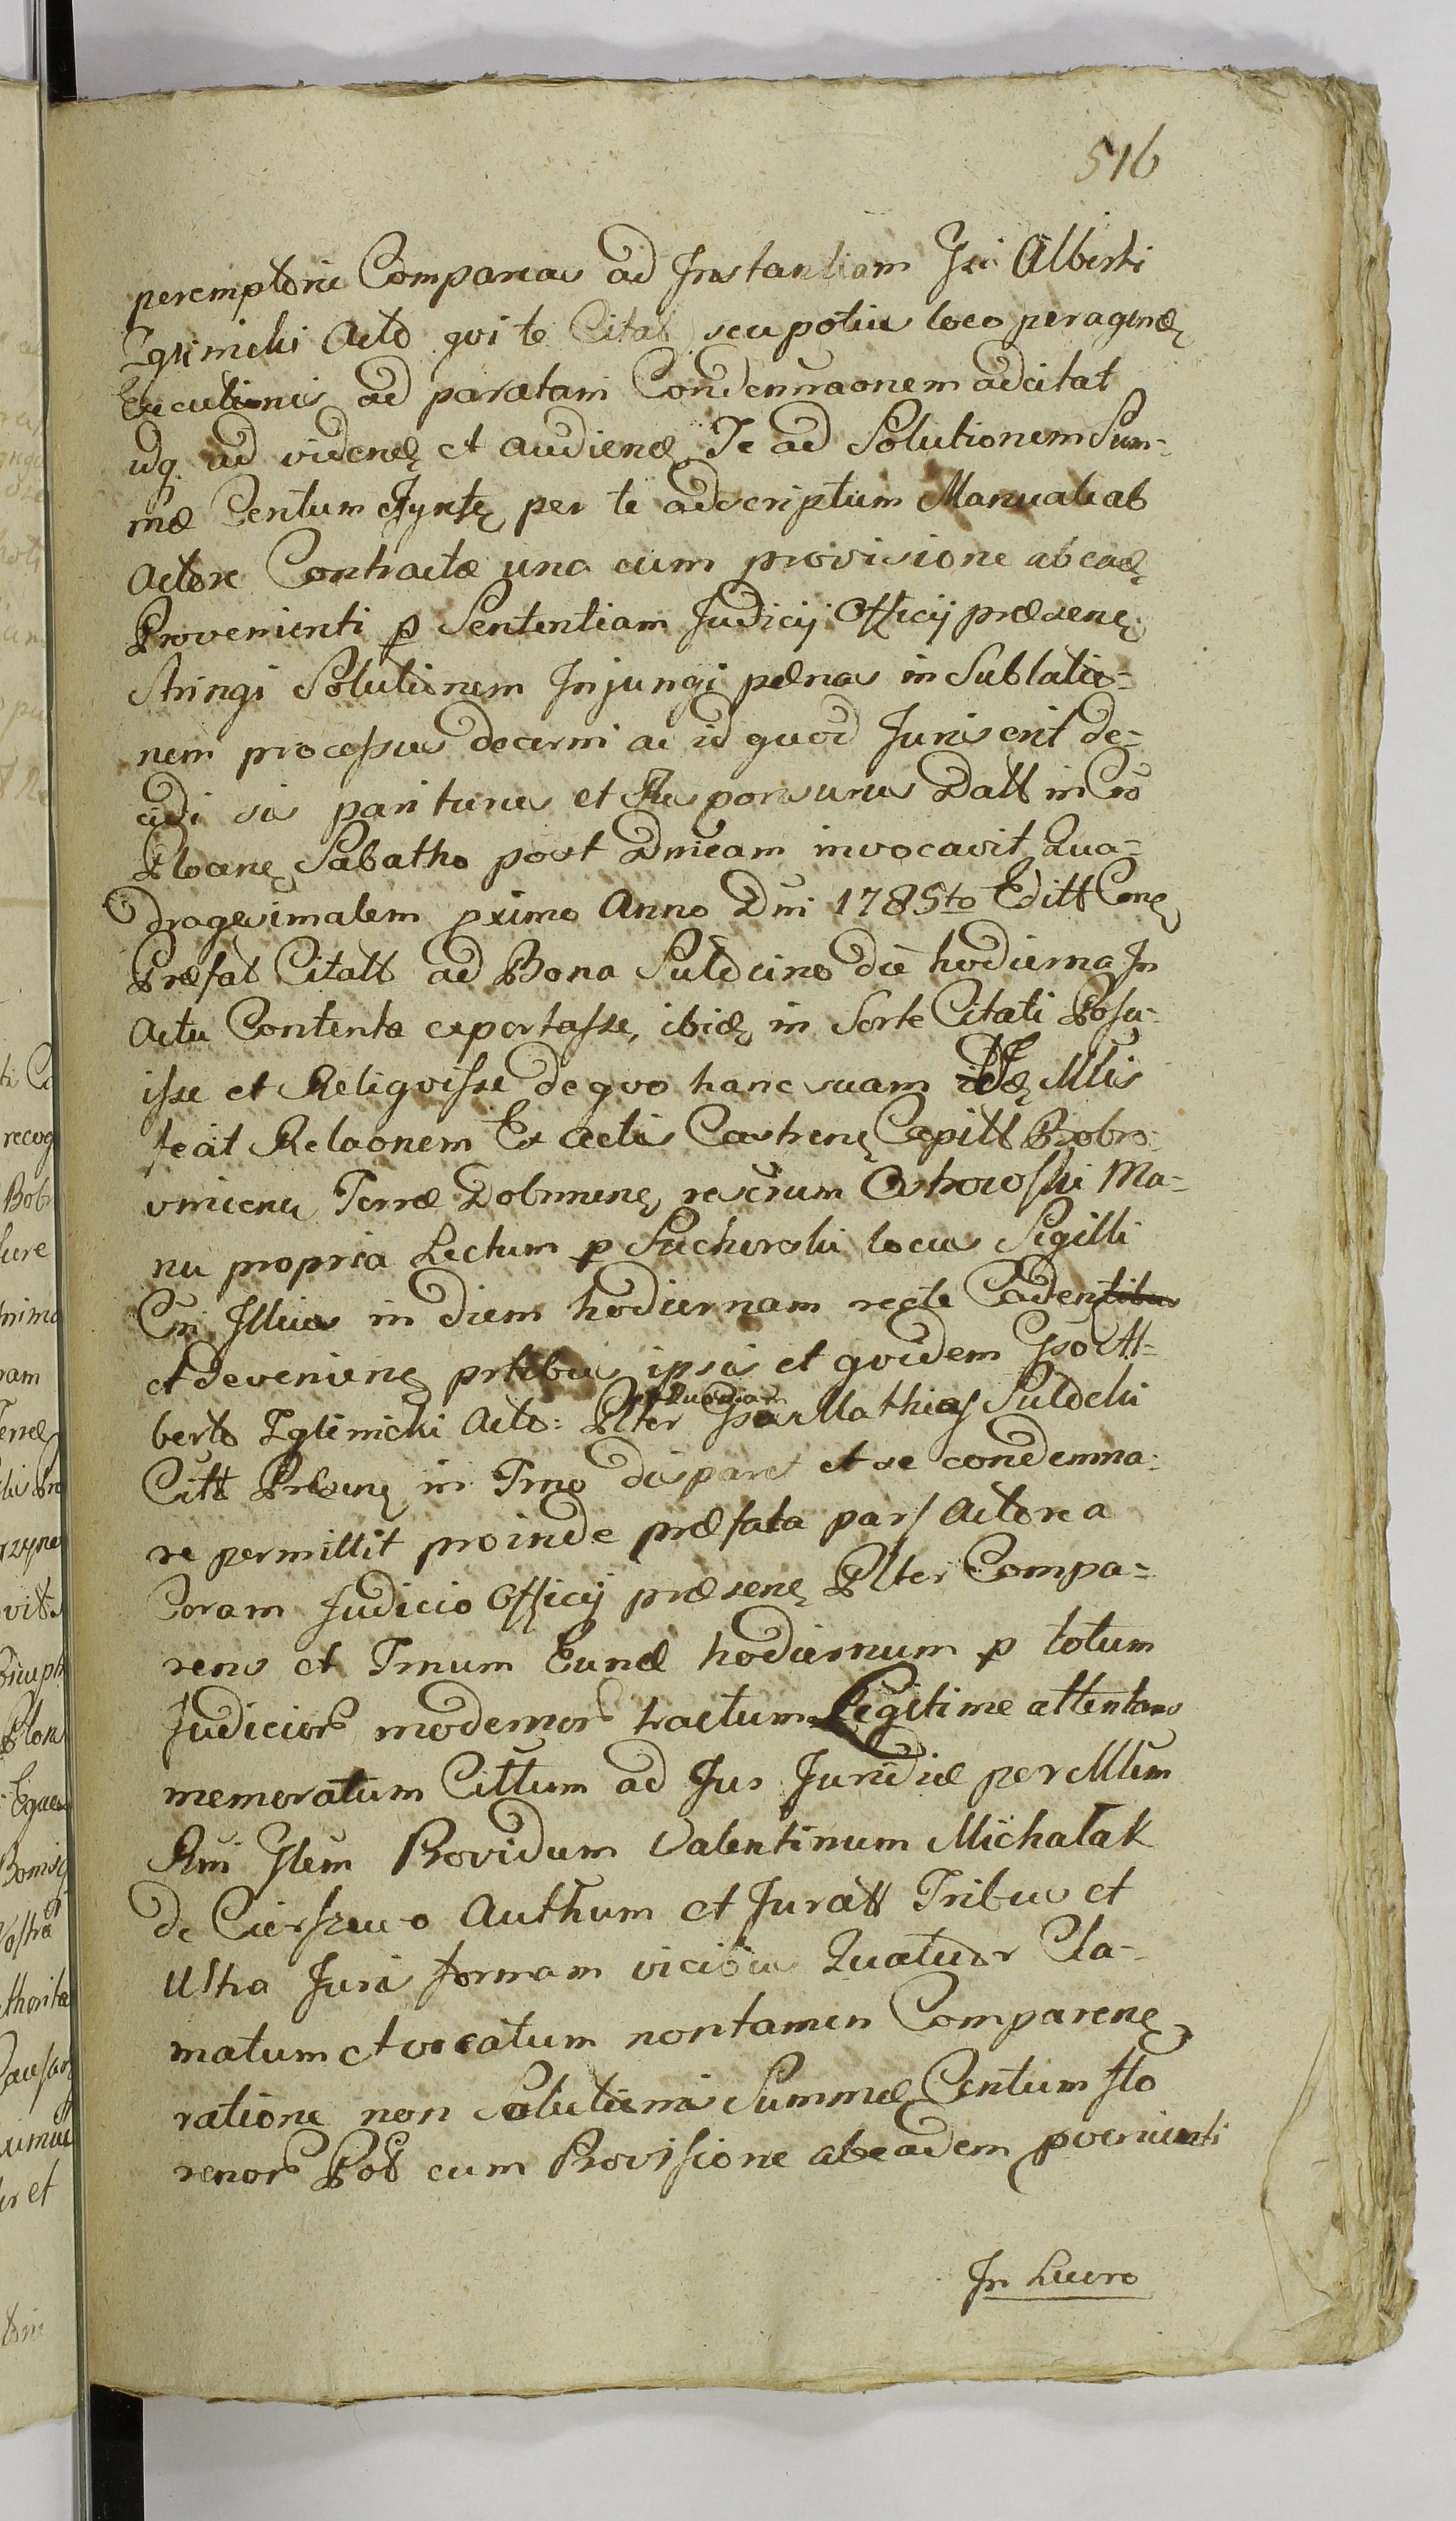 516
peremptorie Compareas ad Instantiam Gsi Alberti
Zglinicki Acto qvi te Citat seu potius loco peragenḍ
Executionis ad paratam Condemnaonem adcitat
idq. ad videnḍ et audienḍ Te ad Solutionem Sum-
mæ Centum Tynfḍ per te adscriptum Manuale ab
Actore Contractæ una cum provisione ab eaḍ
Provenienti p Sententiam Judicij Officij præsenḍ
stringi Solutionem Injungi pænas in Sublatio-
nem processus decerni ac id quod Juris erit de-
cidi sis pariturus et Responsurus Datt in Cro
Plocenḍ Sabatho post Dnicam invocavit Qua-
dragesimalem pximo Anno Dni 1785to Editt Conḍ
Præfat Citatt ad Bona Sułdcino die hodierna In
Actu Contenta exportasse, ibiḍ in Sorte Citati Posu-
isse et Reliqvisse de qvo hanc suam Idḍ Mlis
fecit Relaonem Ex actis Castrenḍ Capitt Bobro-
vnicenḍ Terræ Dobrinenḍ rescrum Ostrowski Ma-
nu propria Lectum p Sucherski locus Sigilli
Cni Illius in diem hodiernam recte Cadentibus
et devenienḍ prtibus ipsis et qvidem Gso Al-
berto Zglinicki Acto: Plter Gsus Mathias Sułdcki
Citt in Tmo dispares et se condemna-
re permittit proinde præfata pars Actorea
Coram Judicio Officij præsenḍ Plter Compa-
rens et Tmum Eund hodiernum p totum
Judicior modernor tractum Legitime attentans
memoratum Cittum ad Jus Juridice per Mlem
Rni Glem Providum Valentinum Michałak
de Cierszewo Authum et Juratt Tribus et
Ultra Juris formam vicibus Quatuor Cla-
matum et vocatum non tamen Comparenḍ
ratione non Solutionis Summæ Centum flo
renor Pol cum Provisione ab eadem pvenienti
In Lucro